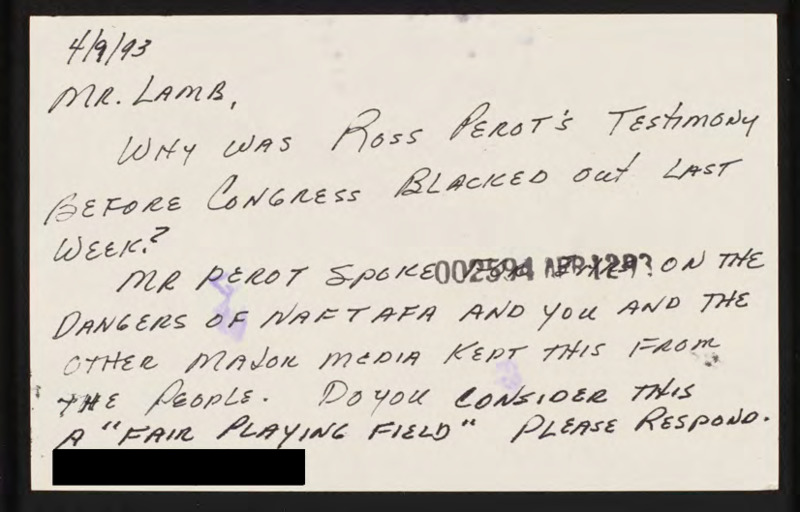 4/9/93
MR. LAMB,
WHY WAS ROSS PEROT'S TESTIMONY
BEFORE CONGRESS BLACKED OUT LAST
WEEK?
MR PEROT SPOKE 002594 APR 12 93 ON THE
DANGERS OF NAFTAFA AND YOU AND THE
OTHER MAJOR MEDIA KEPT THIS FROM
THE PEOPLE. DO YOU CONSIDER THIS
A "FAIR PLAYING FIELD" PLEASE RESPOND.